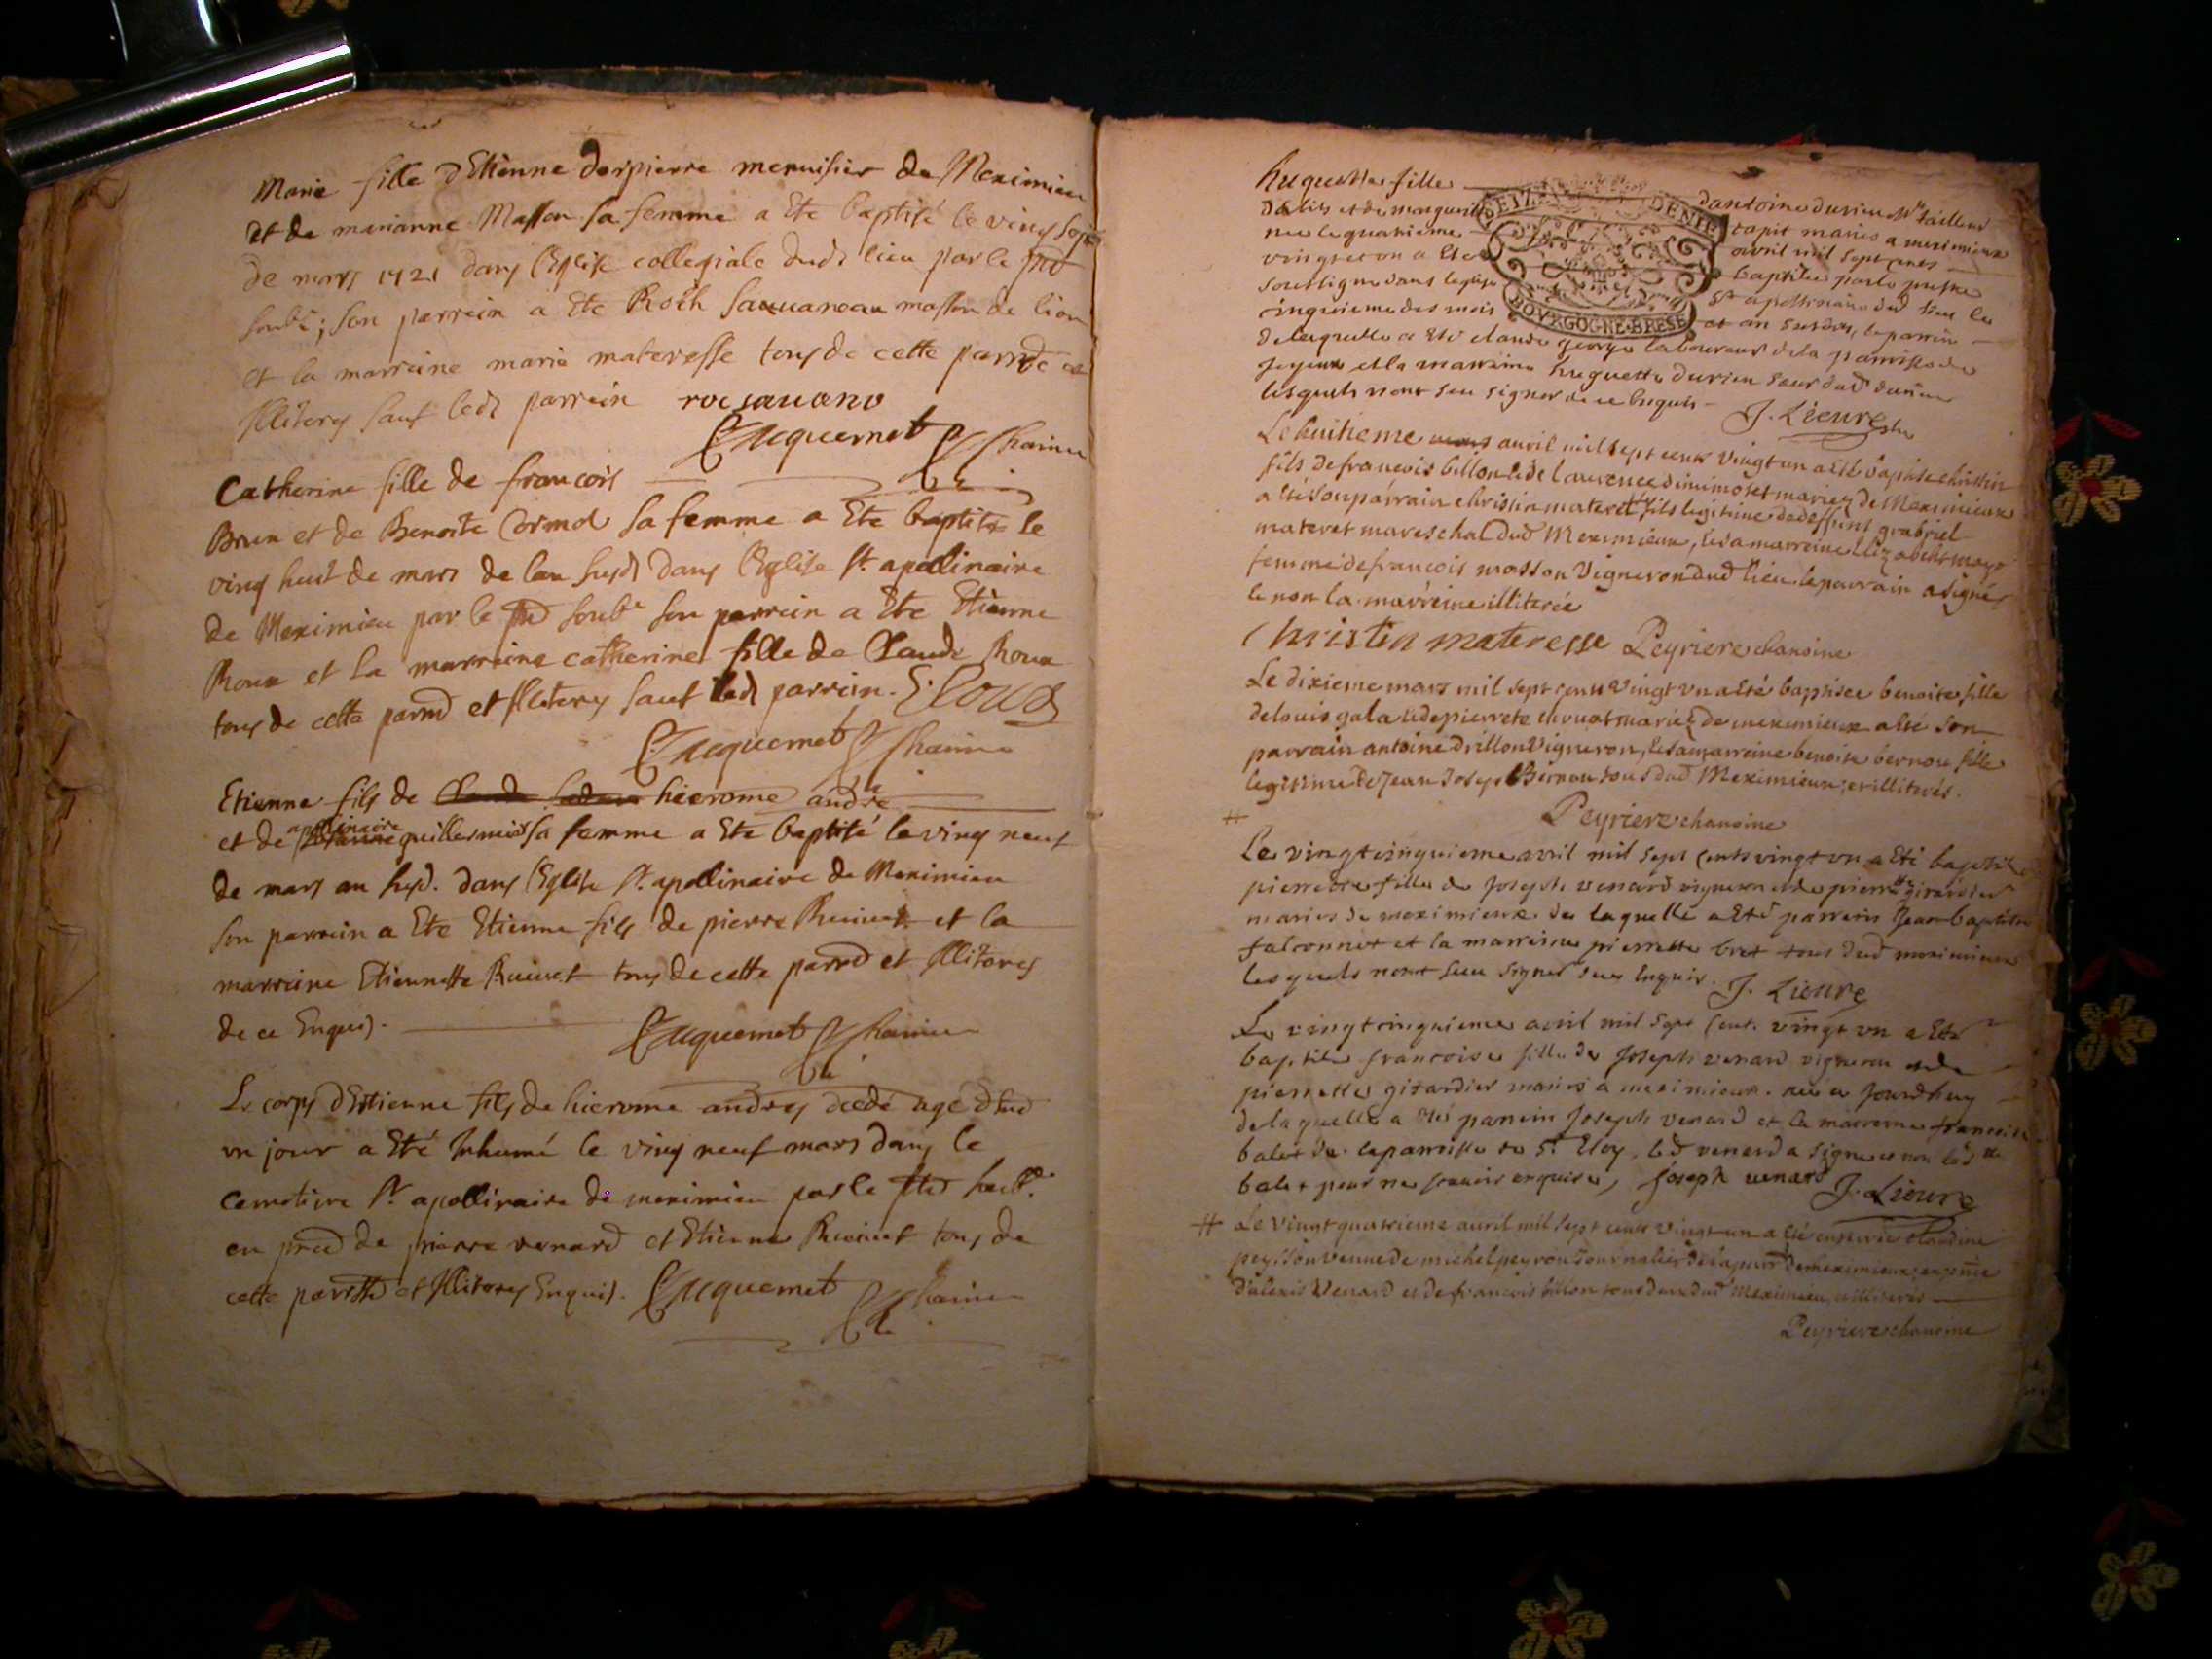 Marie fille d Etienne dorpierre menuisier de Meximieu
et de marianne Masson sa femme a Ete baptisé le ving sept
de mars 1721 dans l'Eglise collegiale dudt lieu par le
soubé; son parrein a Ete Roch sauuaneau masson de lion
et la marreine marie materesse tous de cette
Illiterez sauf ledt parrein roc sauano
Jacquemet
Catherine fille de francois
Brun et de Benoite Cormol sa femme a Ete baptisée le
ving huit de mars de lan susdt dans l'Eglise st. apollinaire
de Meximieu par le soube son parrein a Ete Etienne
Roux et la marreine catherine fille de Claude Roux
tous de cette et Illiterez sauf ledt parrein. E. Roux
Jacquemet
Etienne fils de hierome andre
et de apollinaire guillermin sa femme a Ete baptisé le ving neuf
de mars an susd. dans l'Eglise st. apollinaire de Meximieu
son parrein a Ete Etienne fils de pierre Ruinet et la
marreine Etiennette Ruinet tous de cette et Illiterez
de ce Enquis.
Jacquemet
Le corps dEtienne fils de hierome andrez decedé agé
un jour a Eté Inhumé le ving neuf mars dans le
cemetiere st. apollinaire de meximieu par le
en de pierre venard et Etienne Ruinet tous de
cette et Illiterez Enquis. Jacquemet
huguette fille dantoine durieu tailleur
dhabits et de marguerite tapit mariés a meximieux
née le quatrieme avril mil sept cents
vingt et un a Ete baptisée par le
soussigné dans leglise st apollinaire dud lieu le
cinquieme des mois et an susdits, le parrein
de laquelle a Eté claude george laboureur de la parroisse de
joyeux et la marreine huguette durieu
lesquels n'ont sceu signer de ce Enquis J. Lieure
SEIZ DENIE
BOVRGOGNE-BRESE
Le huitieme avril mil sept cent vingt un a Eté baptisé christin
fils de francois billon et de laurence mariez de Meximieux
a Eté son parrain christin materet fils legitime de deffunt grabriel
materet mareschal dud Meximieux, et sa marreine Elizabeth
femme de francois masson Vigneron dud lieu le parrain a signé
et non la marreine illiterée
Christin materesse Peyriere chanoine
Le dixieme mars mil sept cent vingt un a Eté baptisee benoite fille
de louis gala et de pierrete mariez de meximieux a Eté son
parrain antoine drillon Vigneron, et sa marreine benoite bernou fille
legitime de Jean Joseph Bernou tous dud Meximieux, et illiterés.
# Peyriere chanoine
Le vingt cinquieme avril mil sept cents vingt un a Eté baptisée
pierrette fille de Joseph venard vigneron et de pierrette girardier
mariés de meximieux de laquelle a Eté parrein Jean baptiste
falconnet et la marreine pierrette bret tous dud meximieux
lesquels n'ont sceu signer de ce Enquis. J. Lieure
Le vingt cinquieme avril mil sept cent. vingt un a Ete
baptisée francoise fille de Joseph venard vigneron et de
pierrette girardier mariés a meximieux. née ce Jourdhuy
de laquelle a Eté parrein Joseph venard et la marreine francoise
balet de la parroisse de st Eloy. led venard a signé et non lad
balet pour ne scauoir enquise, Joseph uenard J. Lieure
# Le Vingt quatrieme avril mil sept cent vingt un a Eté enterrée claudine
veuue de michel peyron Journalier de la de meximieux, en
d'alexis Venard et de francois billon tous deux dud Meximieu, illiterés
Peyriere chanoine